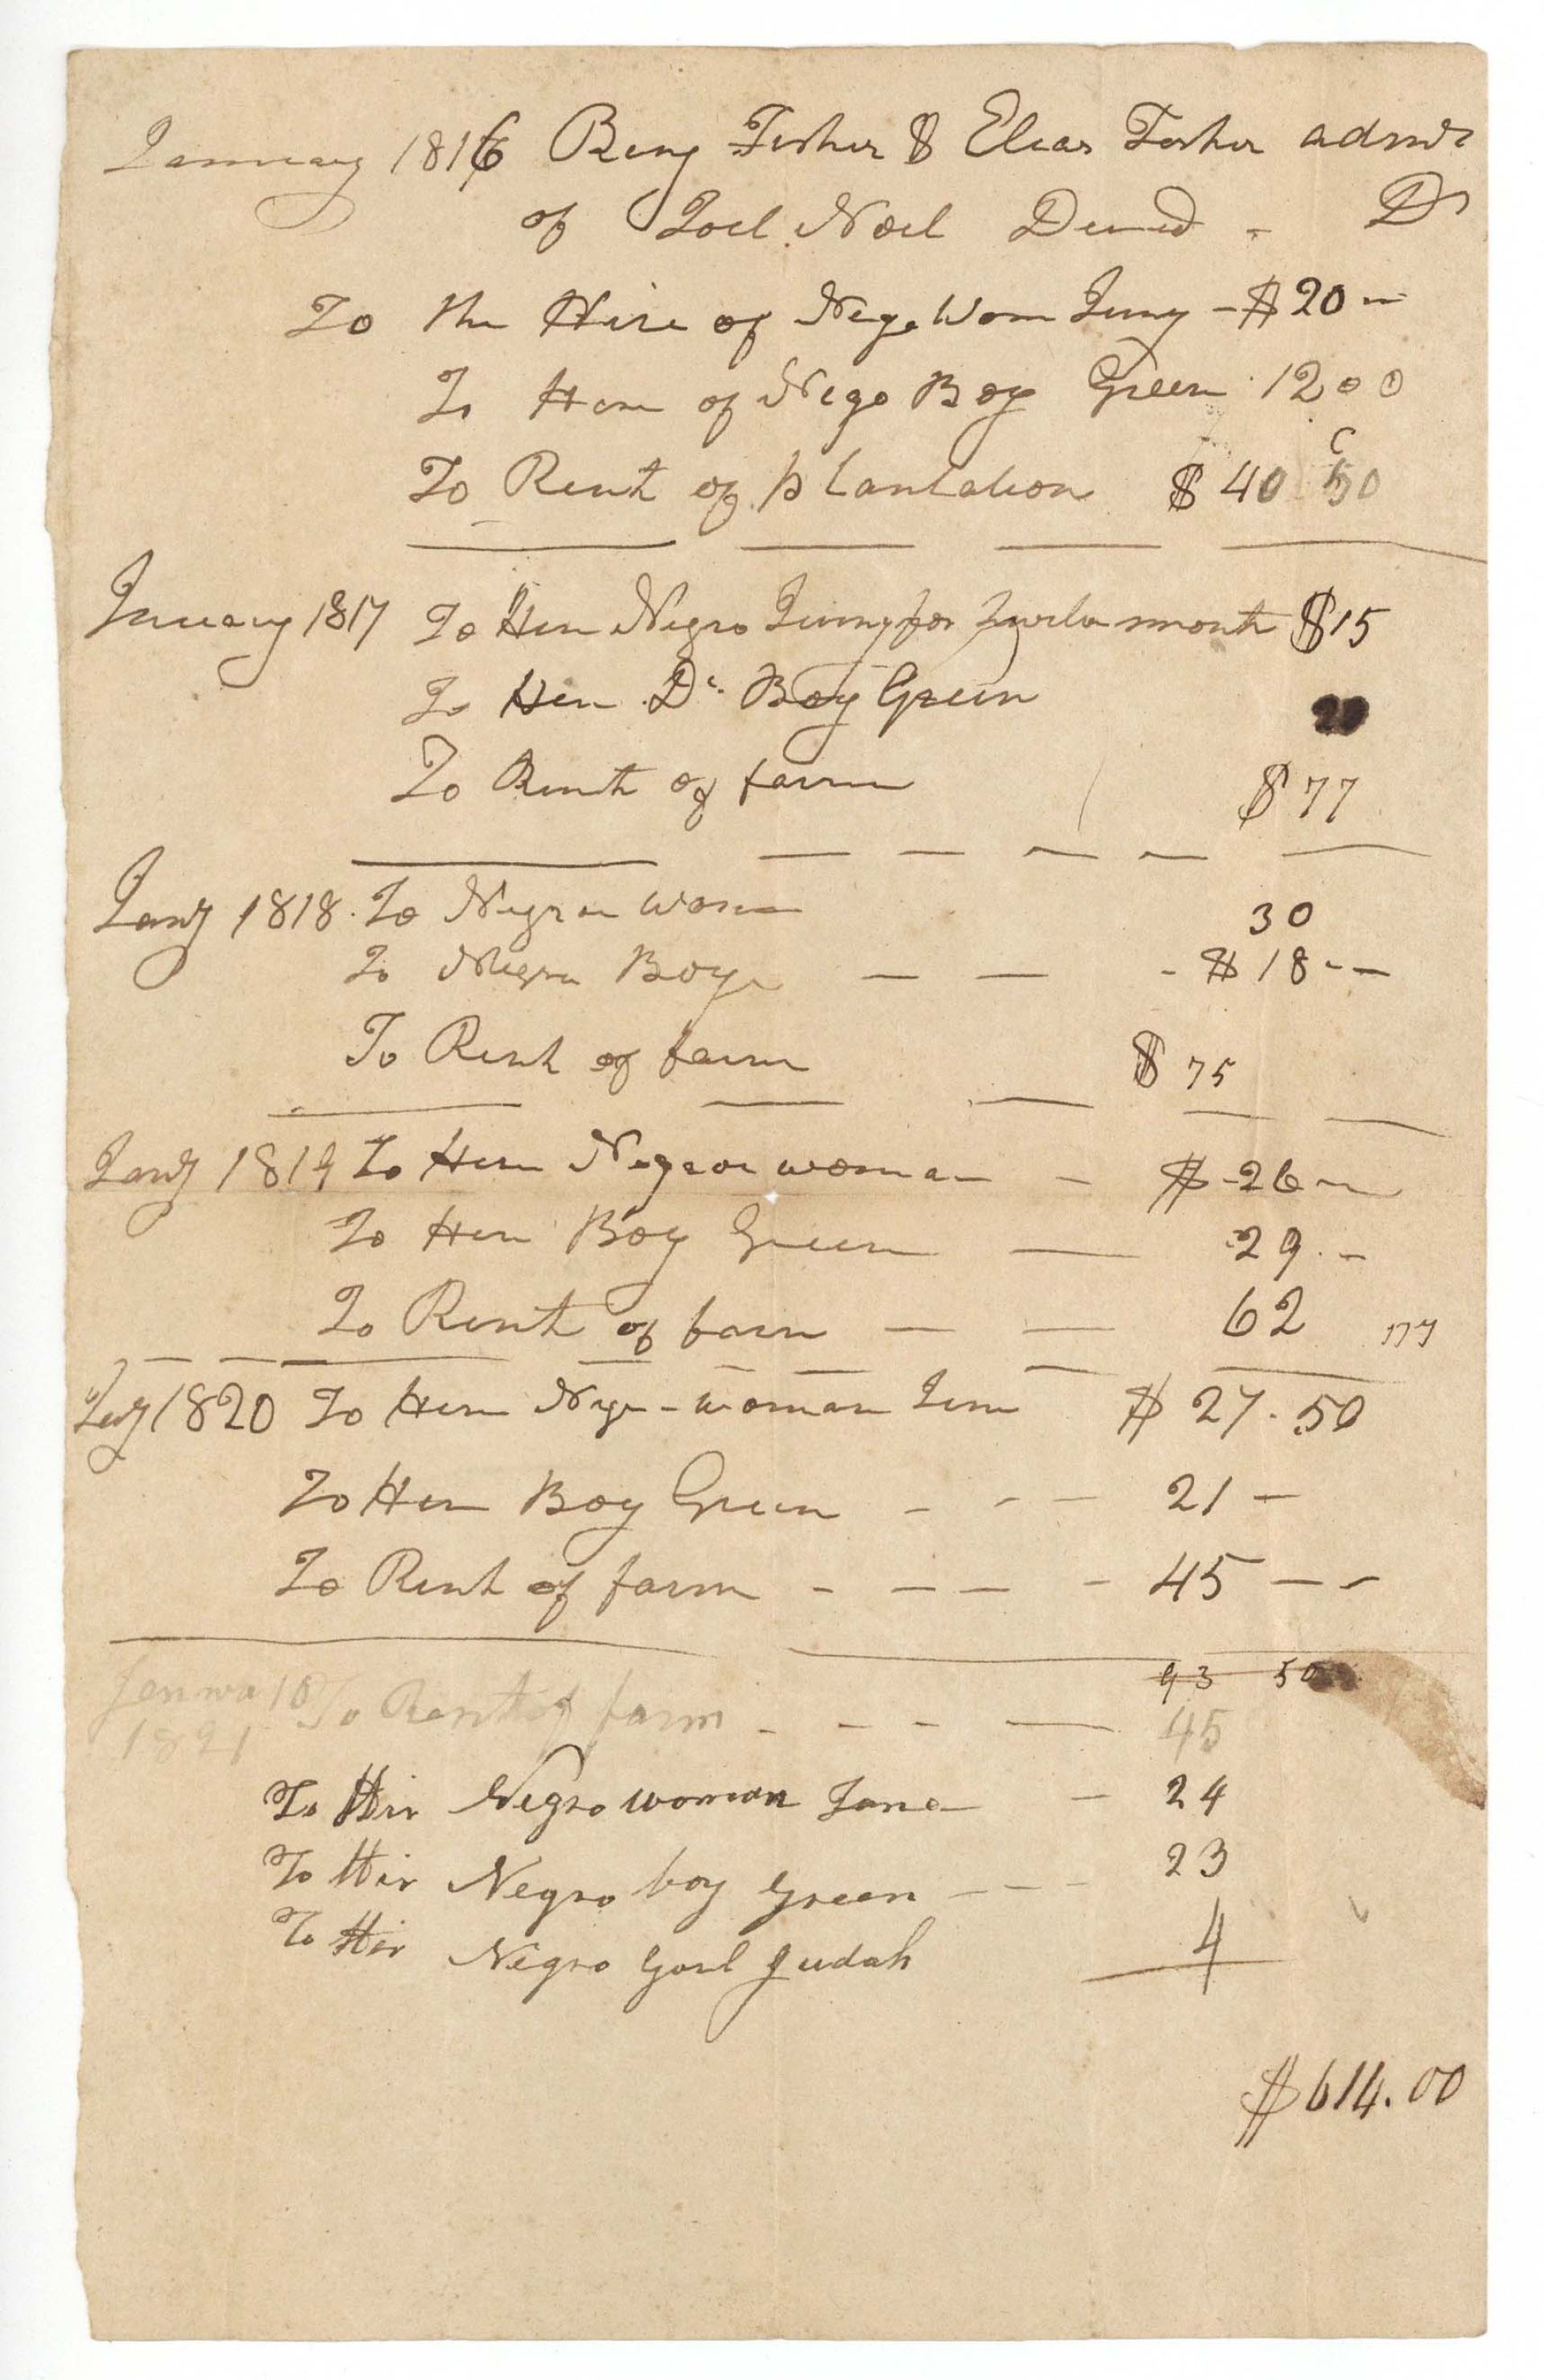 January 1816 Benj Fisher & Elias Fisher admr
of Joel Noel Decusd - Dr
To the Hire of Nego Wom Jinny - $ 20 --
To Hire of Nego Boy Green 12 00
To Rent of plantation $ 40 50 c
January 1817 To Hire Negro Jinny for twelve month $ 15
To Hire Do Boy Green 20
To Rent of farm $ 77
Jany 1818. To Negroe woman 30
To Negro Boy - $ 18 --
To Rent of farm $ 75
Jany 1819 To Hire Negroe woman - $ 26 --
To Hire Boy Green 29. -
To Rent of farm 62
Jay 1820 To Hire Negro - woman Jine $ 27. 50
To Hire Boy Green - - - 21 -
To Rent of farm - - - - 45 - -
93 50
Jenuwa 10 To Rent of farm - - - - 45
1821
To Hir Negro woman Jane - 24
To Hir Negro boy Green - - - 23
To Hir Negro Garl Judah 4
$ 614.00